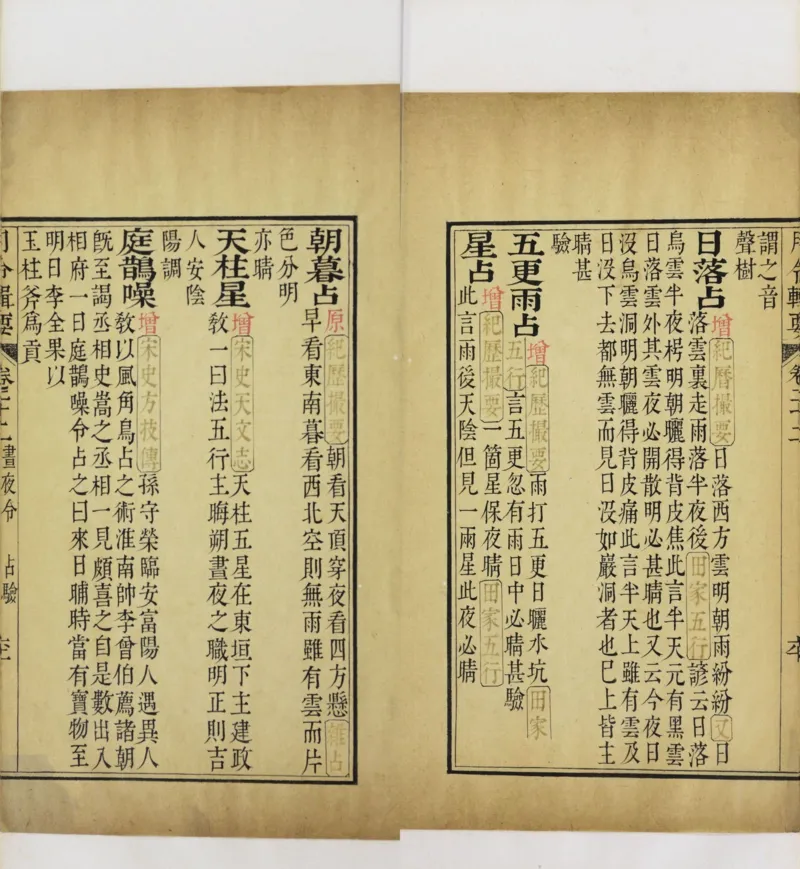 謂之音
聲樹
日落占 增 紀曆撮要 日落西方雲明朝雨紛紛 又 日
落雲裏走雨落半夜後 田家五行 諺云日落
烏雲半夜枵明朝曬得背皮焦此言半天元有黑雲
日落雲外其雲夜必開散明必甚晴也又云今夜日
沒烏雲洞明朝曬得背皮痛此言半天上雖有雲及
日沒下去都無雲而見日沒如巖洞者也已上皆主
晴甚
驗
五更雨占 增 紀歷撮要 雨打五更日曬水坑 田家
五行 言五更忽有雨日中必晴甚驗
星占 增 紀歷撮要 一箇星保夜晴 田家五行
此言雨後天陰但見一兩星此夜必晴
朝暮占 原 紀歷撮要 朝看天頂穿夜看四方懸 雜占
早看東南暮看西北空則無雨雖有雲而片
色分明
亦晴
天柱星 增 宋史天文志 天柱五星在東垣下主建政
敎一曰法五行主晦朔晝夜之職明正則吉
人安陰
陽調
庭鵲噪 增 宋史方技傳 孫守榮臨安富陽人遇異人
敎以風角鳥占之術淮南帥李曾伯薦諸朝
旣至謁丞相史嵩之丞相一見頗喜之自是數出入
相府一日庭鵲噪令占之曰來日晡時當有寶物至
明日李全果以
玉柱斧爲貢
月令輯要 卷二十二 晝夜令 占驗